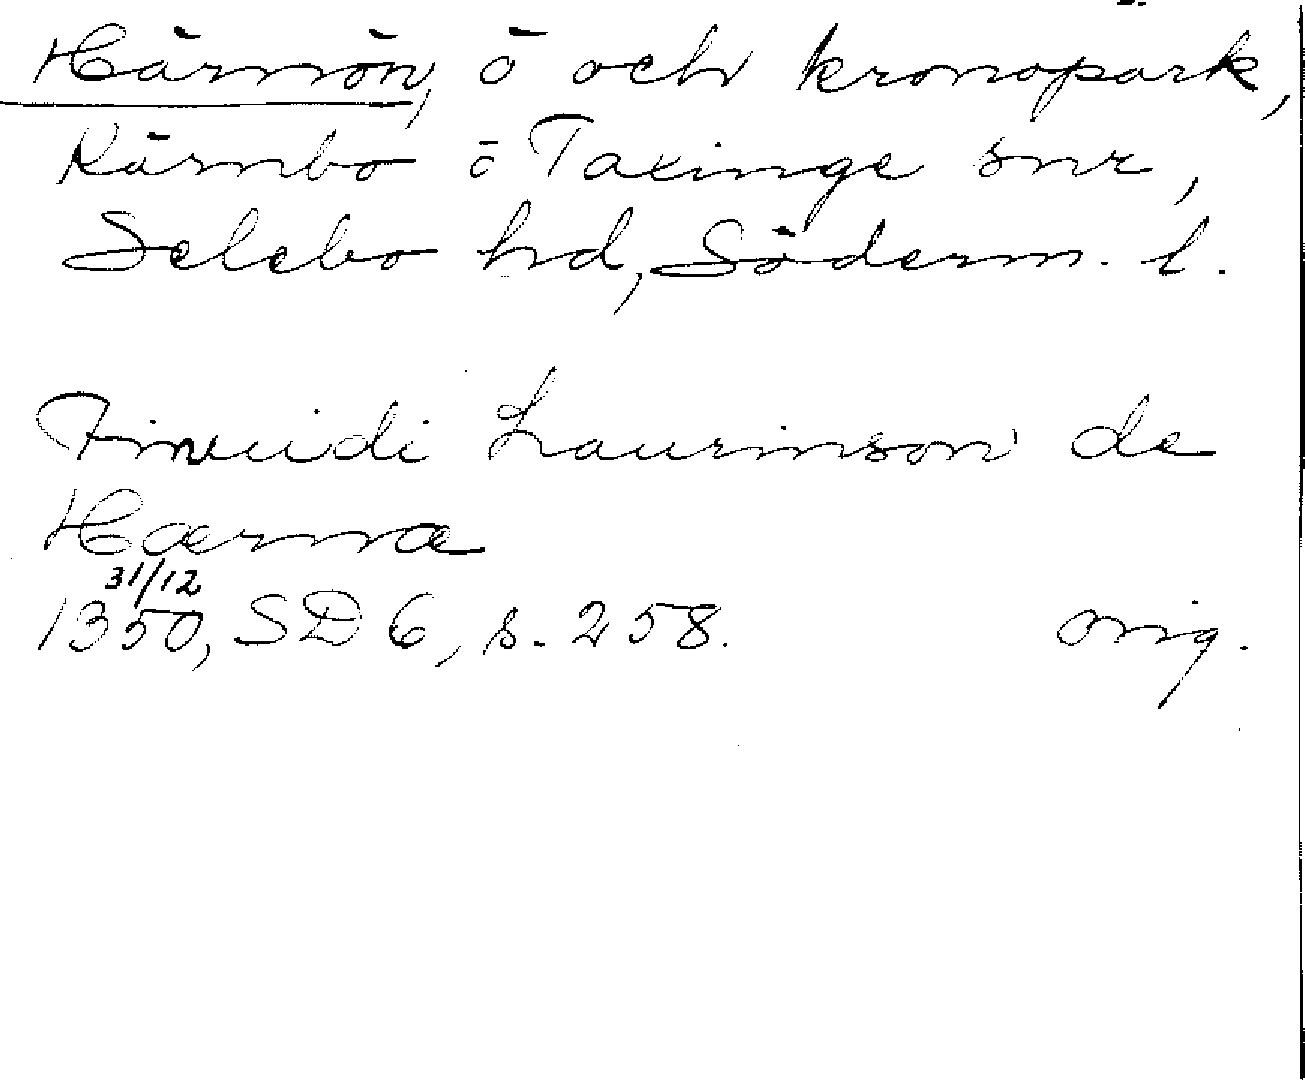 Härnön, ö och kronopark,
Kärnbo o Taxinge snr,
Selebo hd, Söderm. l.
Finuidi Laurinson de
Haerna
31/12
1350, SD 6, s. 258. orig.